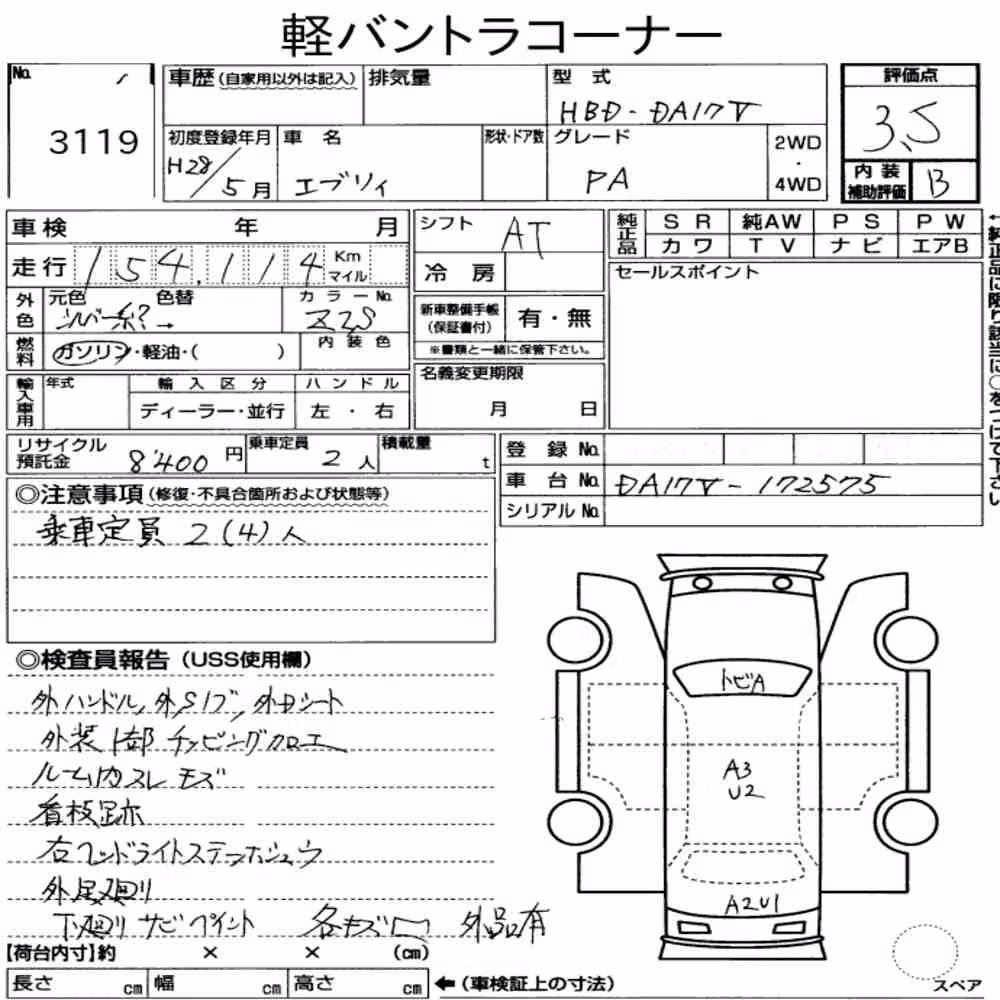 軽バントラコーナー
No. 3119
車歴 (自家用以外は記入) 排気量 型式 HBD-DA17V
評価点 3.5
初度登録年月 H28/5月 車名 エブリィ 形状・ドア数 グレード PA 2WD・4WD
内装補助評価 B
車検 年 月 シフト AT
純正品 SR 純AW PS PW
カワ TV ナビ エアB
走行 154,114 Km マイル 冷房
セールスポイント
←純正品に限り該当に○をつけて下さい
外色 元色 シルバー系? 色替 → カラーNo. Z2S
新車整備手帳(保証書付) 有・無
※書類と一緒に保管下さい。
燃料 ガソリン・軽油・( ) 内装色
輸入車用 年式 輸入区分 ハンドル
ディーラー・並行 左・右
名義変更期限
月 日
リサイクル預託金 8,400円 乗車定員 2人 積載量 t
登録No.
車台No. DA17V-172575
シリアルNo.
◎注意事項 (修復・不具合箇所および状態等)
乗車定員 2(4)人
◎検査員報告 (USS使用欄)
外ハンドル, 外Sノブ, 外Dシート
外装 1部 チッピングクロエ
ルーム内スレ キズ
看板跡
右ヘッドライトステーホシュウ
外足廻り
下廻り サビ ペイント 各キズ凹 外品有
トビA
A3
U2
A2U1
【荷台内寸】約 × × (cm)
長さ cm 幅 cm 高さ cm ←(車検証上の寸法)
スペア